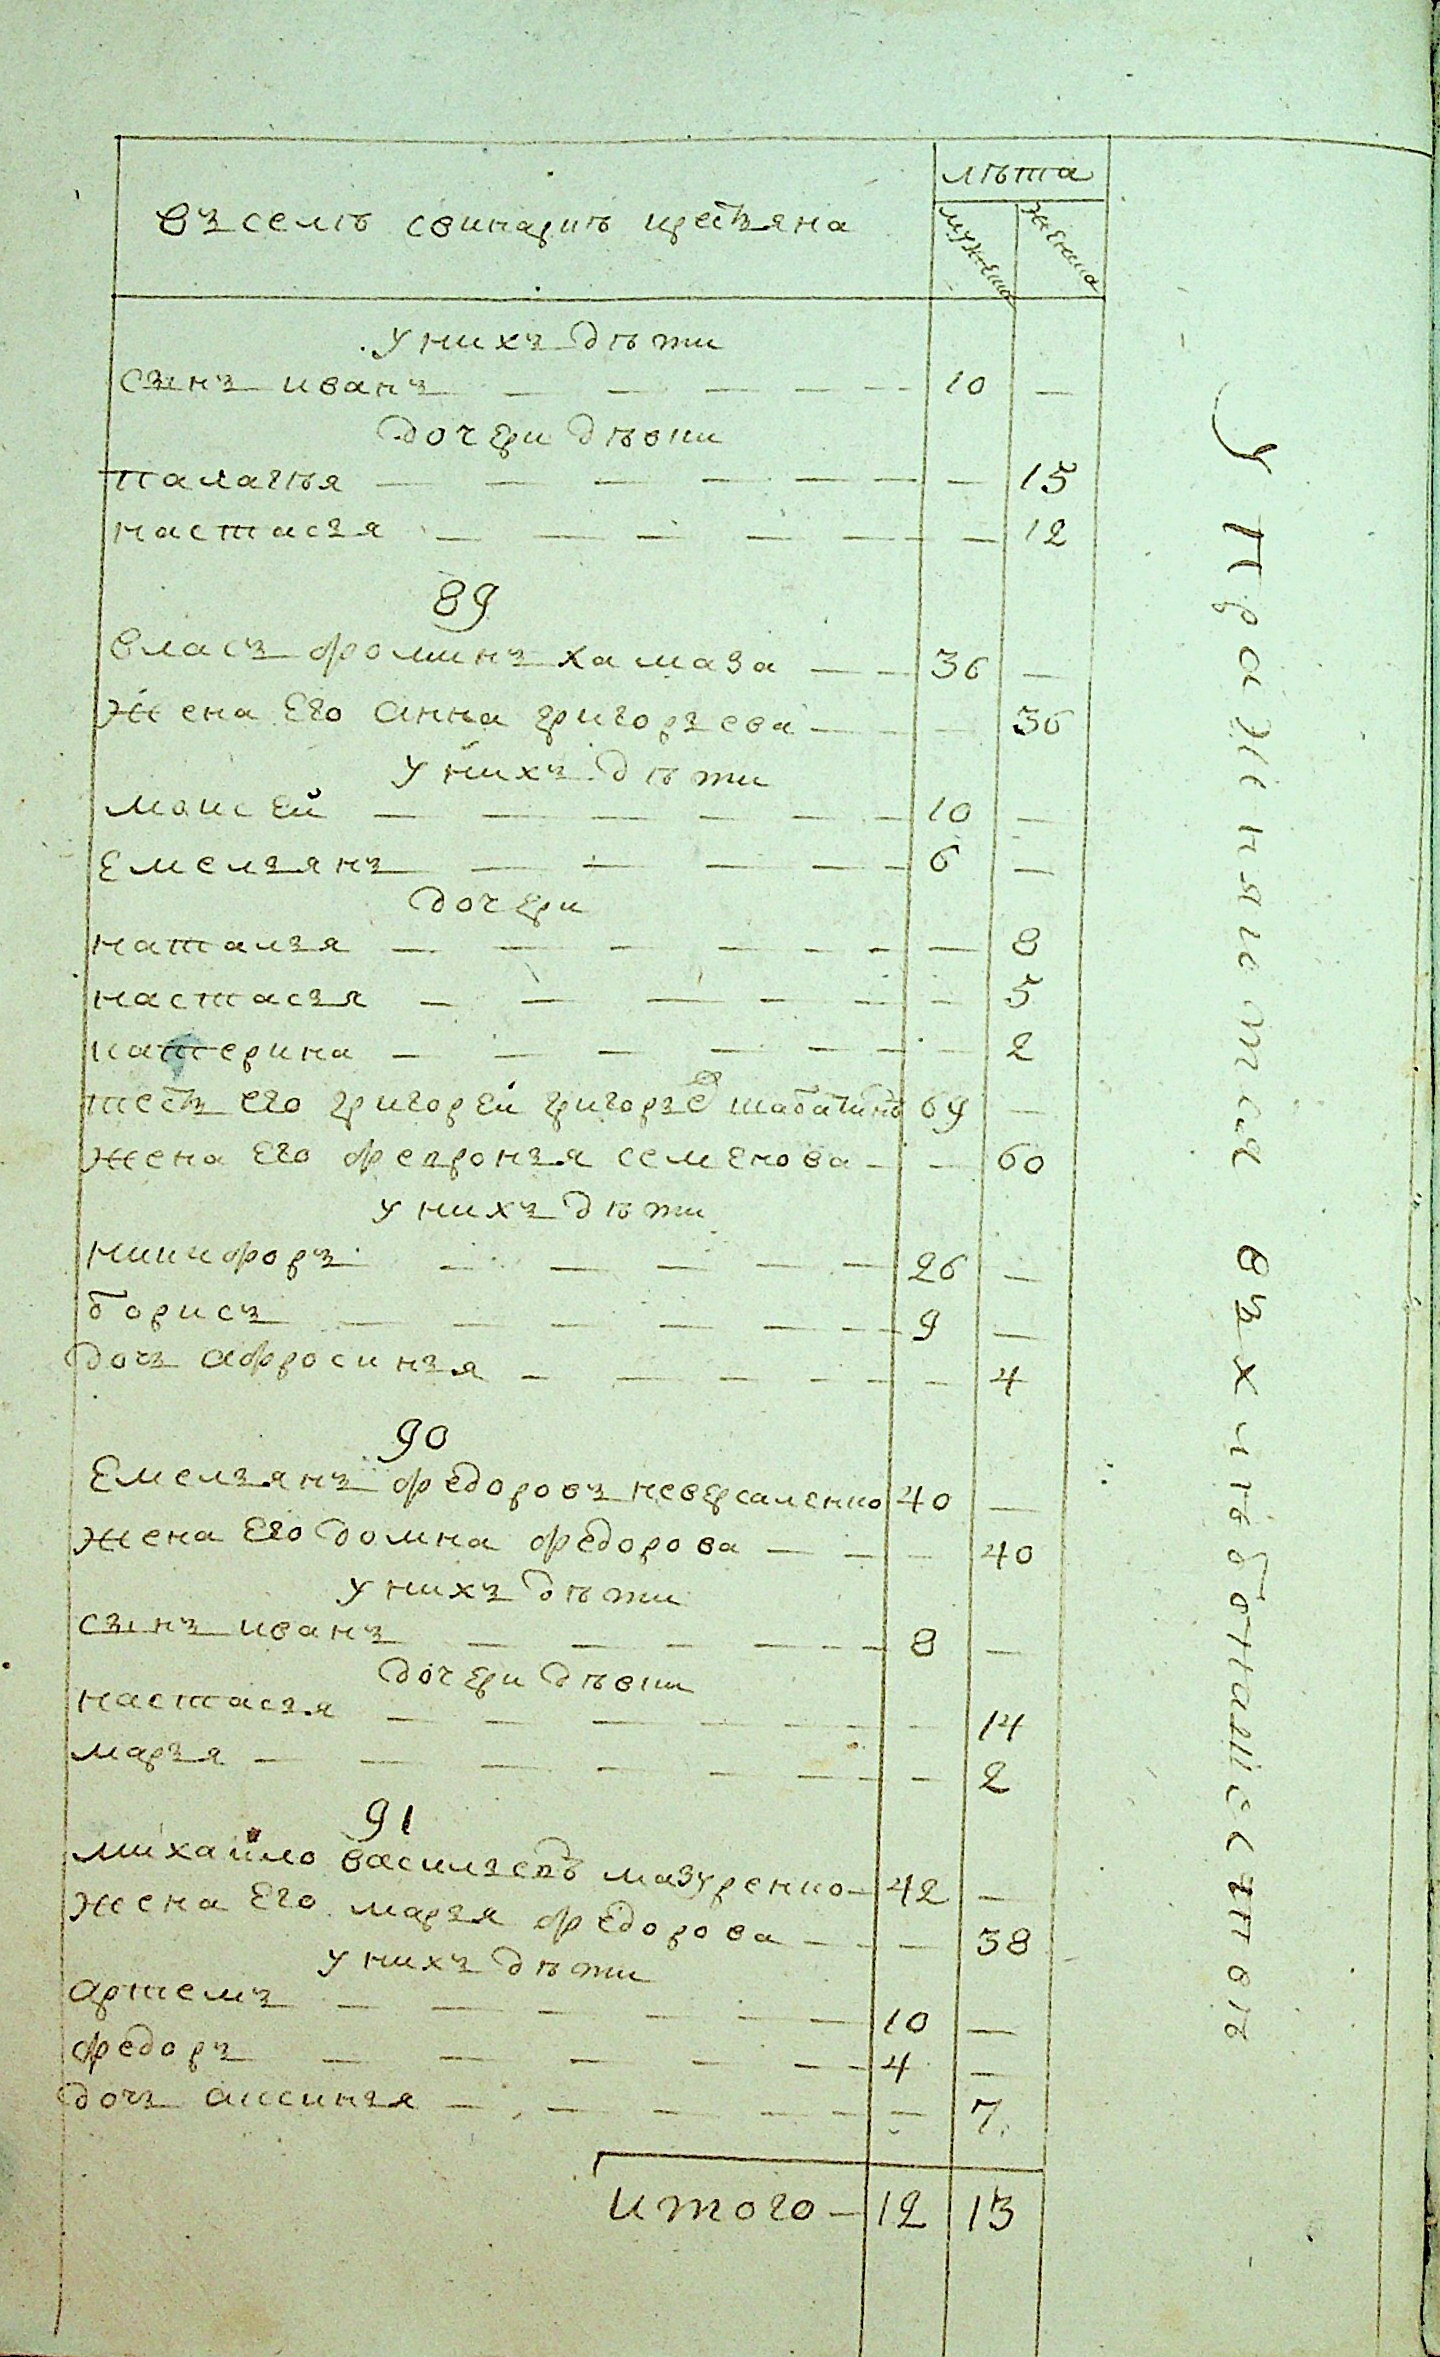 лѣта
въ селѣ свинарнѣ крестьяна
мужеска
женска
у нихъ дѣти
сынъ иванъ — 10 —
дочери дѣвки
палагѣя — 15
настасья — 12
89
власъ фоминъ хамаза — 36 —
жена Его анна григорьева — 36
у нихъ дѣти
моисей — 10 —
Емельянъ — 6 —
дочери
наталья — 8
настасья — 5
катерина — 2
тесть его григорей григорьевъ 69 —
жена Его февронья семенова — 60
у нихъ дѣти
никифоръ — 26 —
борисъ — 9 —
дочь афросинья — 4
90
Емельянъ федоровъ неверсаленко 40 —
жена Его домна федорова — 40
у нихъ дѣти
сынъ иванъ — 8 —
дочери дѣвки
настасья — 14
марья — 2
91
михайло васильевъ мазуренко — 42 —
жена Его марья федорова — 38
у нихъ дѣти
артемъ — 10 —
федоръ — 4 —
дочь аксинья — 7
итого — 12 13
Упражняются въ хлѣбопашествѣ